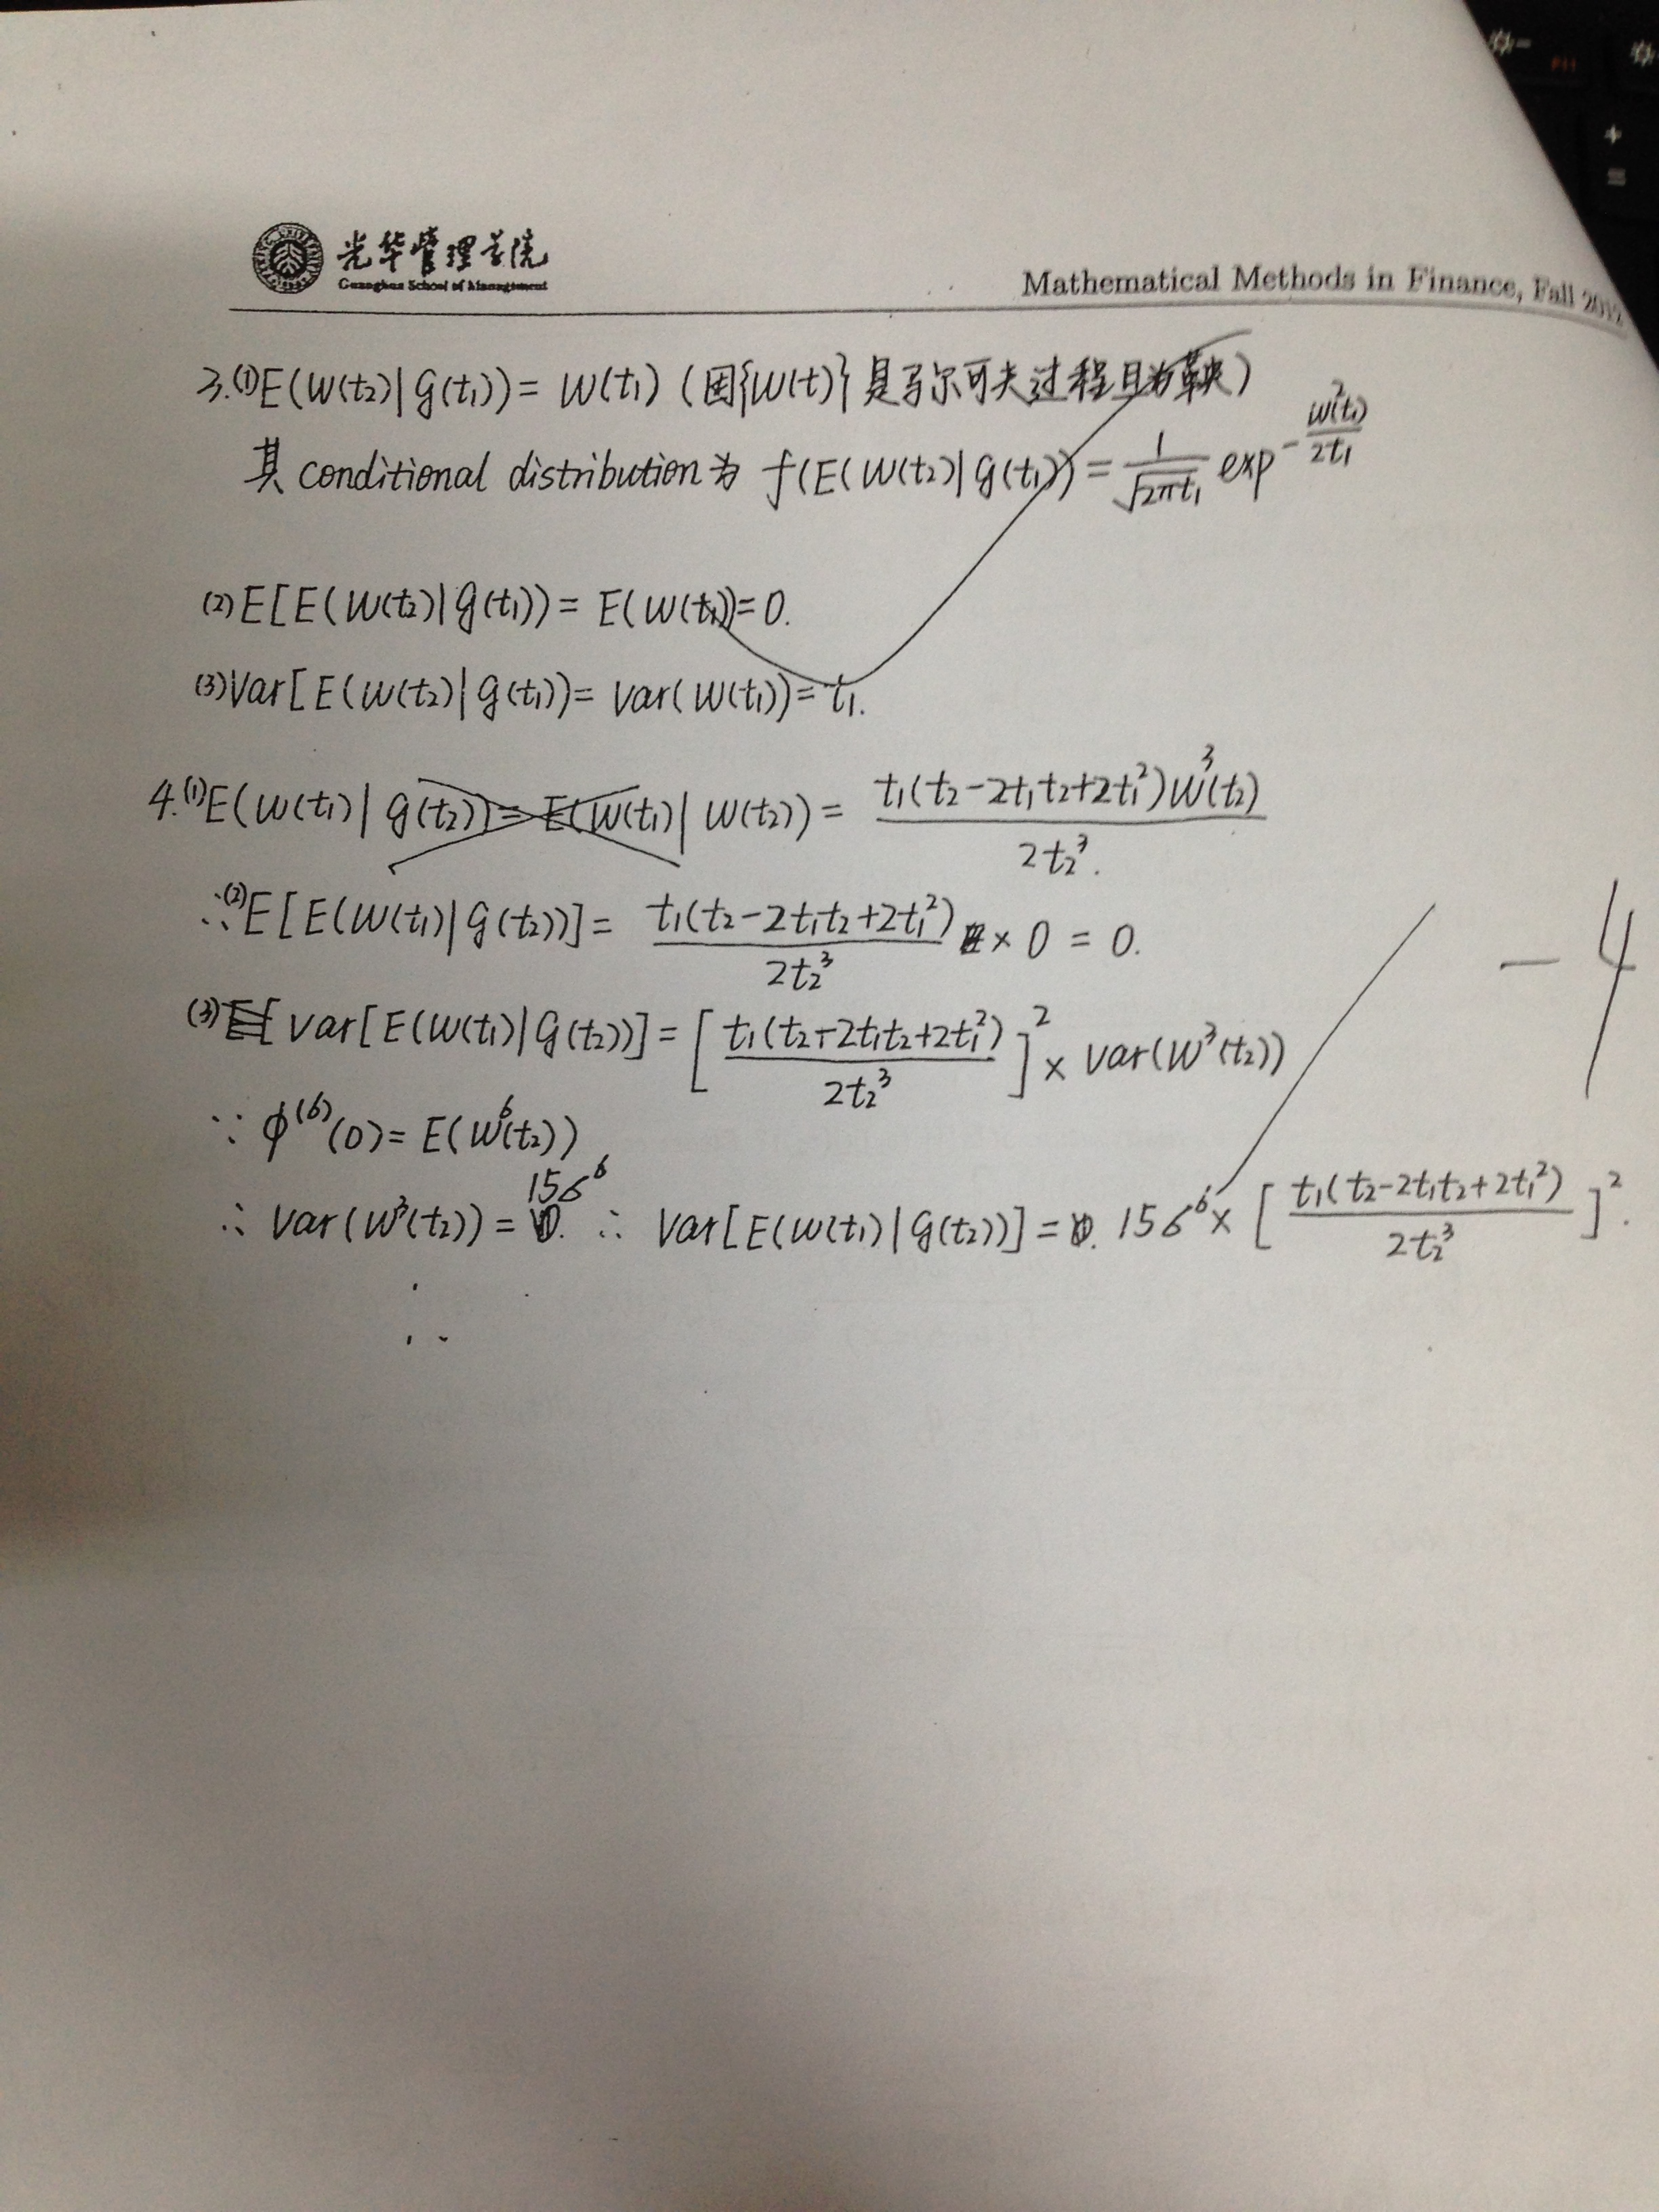 光华管理学院
Guanghua School of Management
Mathematical Methods in Finance, Fall 2012
3.(1) E(W(t₂)|g(t₁)) = W(t₁) (因{W(t)}是马尔可夫过程且为鞅)
其 conditional distribution 为 f(E(W(t₂)|g(t₁)) = 1/√(2πt₁) exp^(-W²(t₁)/2t₁)
(2) E[E(W(t₂)|g(t₁)) = E(W(t₁)) = 0.
(3) Var[E(W(t₂)|g(t₁)) = Var(W(t₁)) = t₁.
4.(1) E(W(t₁)|g(t₂)) = E(W(t₁)|W(t₂)) = t₁(t₂-2t₁t₂+2t₁²)W³(t₂) / 2t₂³.
∴(2) E[E(W(t₁)|g(t₂))] = t₁(t₂-2t₁t₂+2t₁²) / 2t₂³ × 0 = 0.
-4
(3) Var[E(W(t₁)|g(t₂))] = [t₁(t₂-2t₁t₂+2t₁²) / 2t₂³]² × Var(W³(t₂))
∵ φ⁽⁶⁾(0) = E(W⁶(t₂))
∴ Var(W³(t₂)) = 15σ⁶ ∴ Var[E(W(t₁)|g(t₂))] = 15σ⁶ × [t₁(t₂-2t₁t₂+2t₁²) / 2t₂³]².
∴
F11
+
=